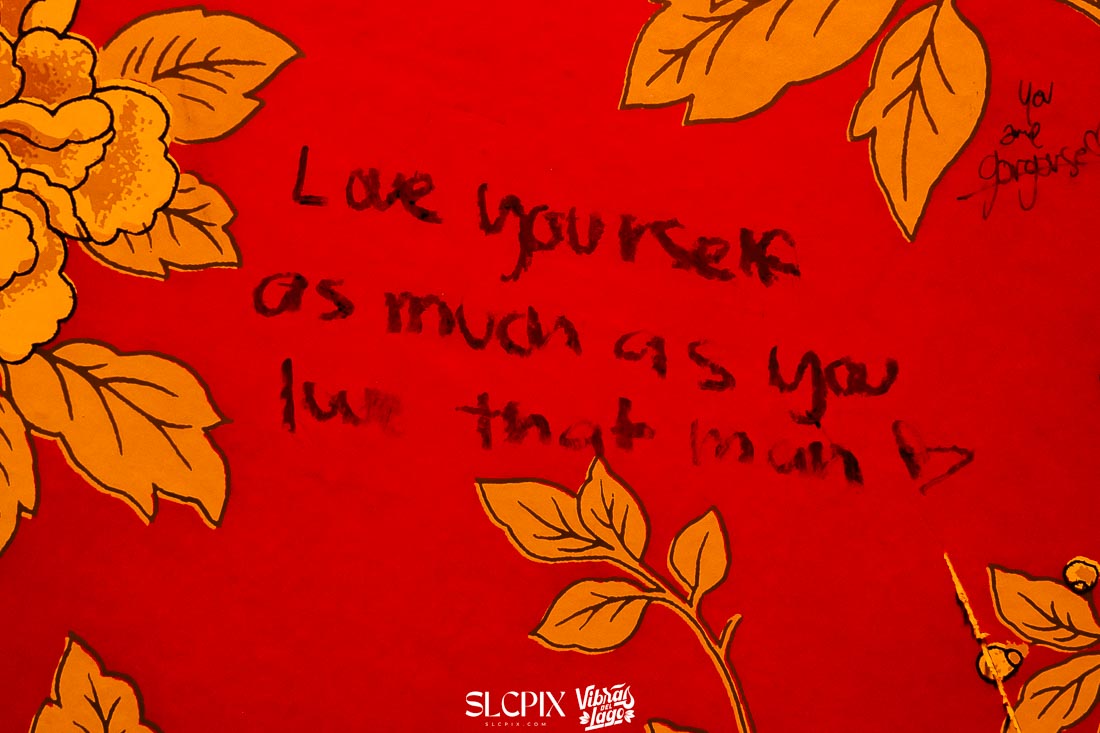 Love yourself
as much as you
luv that man
You
are
SLCPIX
SLCPIX.COM
Vibras
DEL
Lago